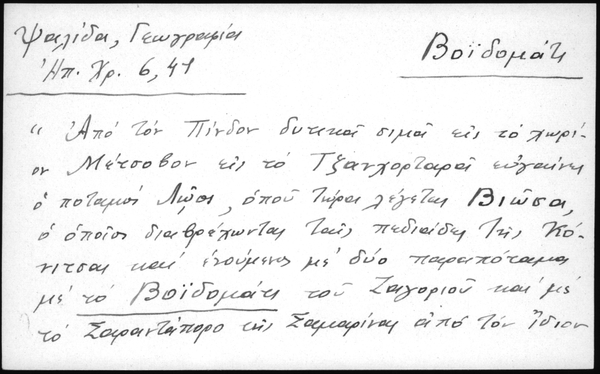 Ψαλίδα, Γεωγραφία
Ἠπ. Χρ. 6, 41
Βοϊδομάτι
"Ἀπό τόν Πίνδον δυτικά σιμά εἰς τό χωρί-
ον Μέτσοβον εἰς τό Τζανχορταρά εὐγαίνει
ὁ ποταμός Λῷος, ὁποῦ τώρα λέγεται Βιῶσα,
ὁ ὁποῖος διαβρέχωντας ταῖς πεδιάδες τῆς Κό-
νιτσας καί ἑνούμενος μέ δύο παραπόταμα
μέ τό Βοϊδομάτι τοῦ Ζαγοριοῦ καί μέ
τό Σαραντάπορο τῆς Σαμαρίνας ἀπό τόν ἴδιον